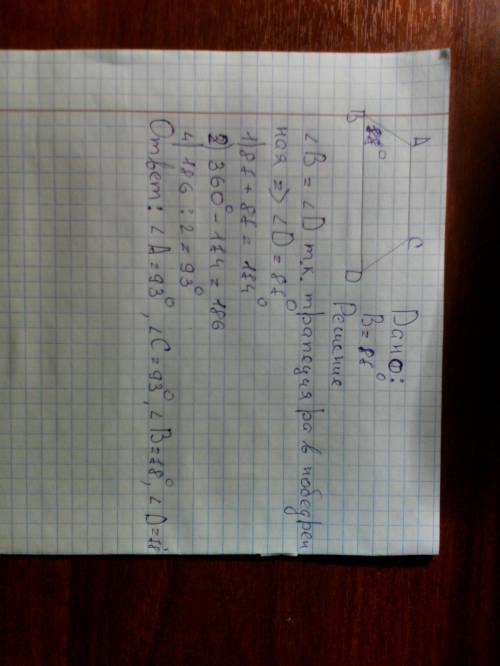 A C
B 87° D
Дано:
B = 87°
Решение
∠B = ∠D т.к. трапеция равнобедрен
ная => ∠D = 87°
1) 87 + 87 = 174°
2) 360° - 174 = 186
4) 186 : 2 = 93°
Ответ: ∠A = 93°, ∠C = 93°, ∠B = 78°, ∠D = 78°